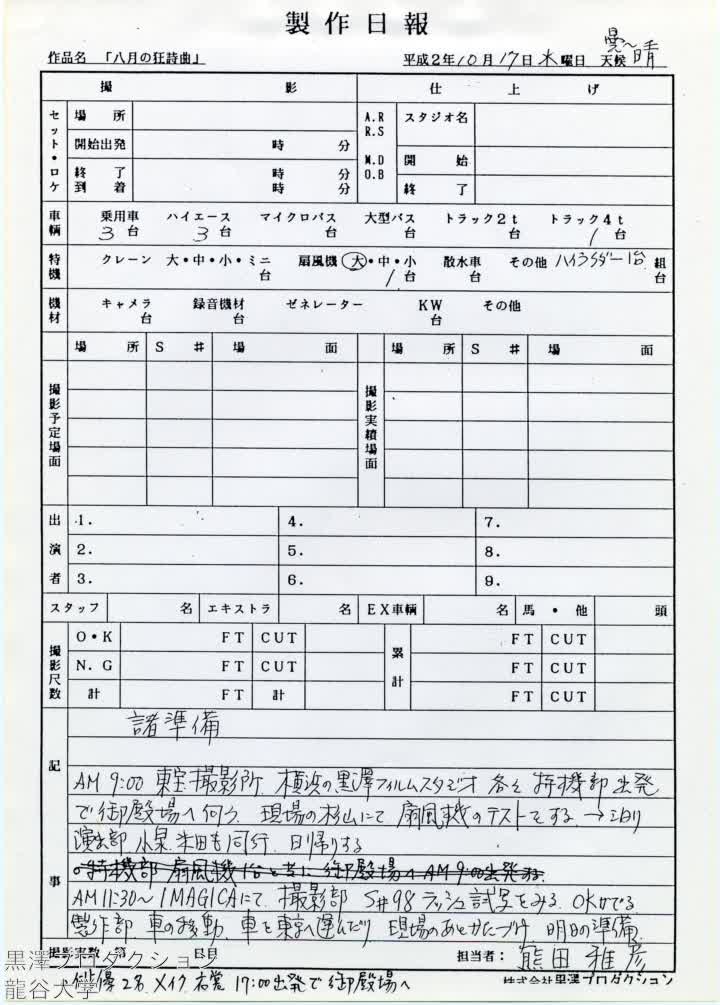 製作日報
作品名 「八月の狂詩曲」 平成2年10月17日水曜日 天候 曇〜晴
撮影 仕上げ
セット・ロケ 場所 A.R R.S M.D O.B スタジオ名
開始出発 時 分 開始
終了到着 時 分 時 分 終了
車輌 乗用車 3台 ハイエース 3台 マイクロバス 台 大型バス 台 トラック2t 台 トラック4t 1台
特機 クレーン 大・中・小・ミニ 台 扇風機 大・中・小 1台 散水車 台 その他 ハイラダー1台 組 台
機材 キャメラ 台 録音機材 台 ゼネレーター KW 台 その他
場所 S# 場面 場所 S# 場面
撮影予定場面 撮影実績場面
出演者 1. 4. 7.
2. 5. 8.
3. 6. 9.
スタッフ 名 エキストラ 名 EX車輌 名 馬・他 頭
撮影尺数 O・K FT CUT 累計 FT CUT
N.G FT CUT FT CUT
計 FT 計 FT CUT
記事 諸準備
AM 9:00 東宝撮影所 横浜の黒澤フィルムスタジオ 各々 特機部 出発
で御殿場へ向う. 現場の杉山にて 扇風機のテストをする. →
演出部 小泉 米田も同行. 日帰りする
特機部 扇風機1台と共に 御殿場へAM9:00出発
AM 11:30〜 IMAGICAにて. 撮影部 S#98 ラッシュ試写をみる. OKがでる.
製作部 車の移動. 車を東京へ運んだり 現場のあとかたづけ 明日の準備.
撮影実数 日目 担当者: 熊田雅彦
俳優2名 メイク 17:00出発で御殿場へ
株式会社黒澤プロダクション
黒澤プロダクション
龍谷大学